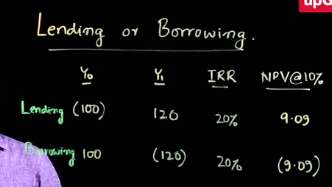 upG
Lending or Borrowing.
Y₀ Y₁ IRR NPV@10%
Lending (100) 120 20% 9.09
Borrowing 100 (120) 20% (9.09)